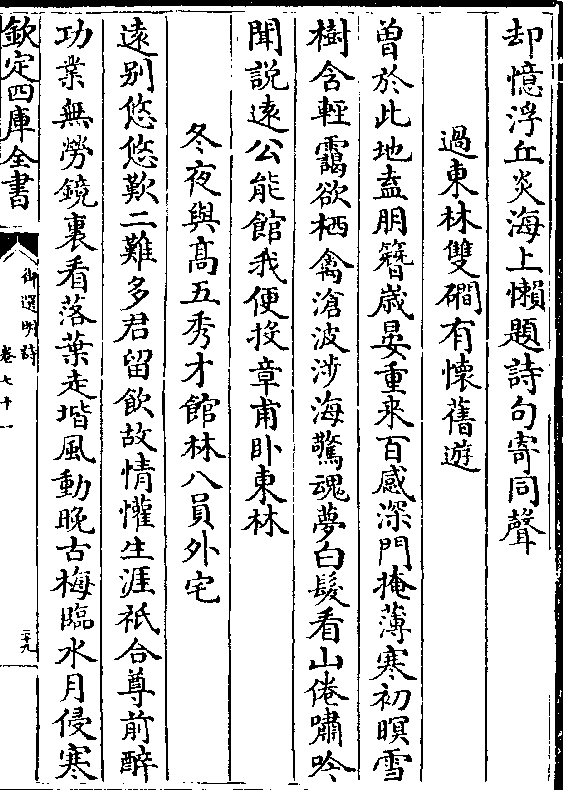 却憶浮丘炎海上懶題詩句寄同聲
過東林雙磵有懷舊遊
曽於此地盍朋簪嵗晏重来百感深門掩薄寒初暝雪
樹含輕靄欲栖禽滄波涉海驚魂夢白髮看山倦嘯吟
聞說逺公能館我便投章甫卧東林
冬夜與髙五秀才館林八員外宅
逺别悠悠歎二難多君留飲故情懽生涯祇合尊前醉
功業無勞鏡裏看落葉走堦風動晚古梅臨水月侵寒
欽定四庫全書
御選明詩
卷七十一
三十九